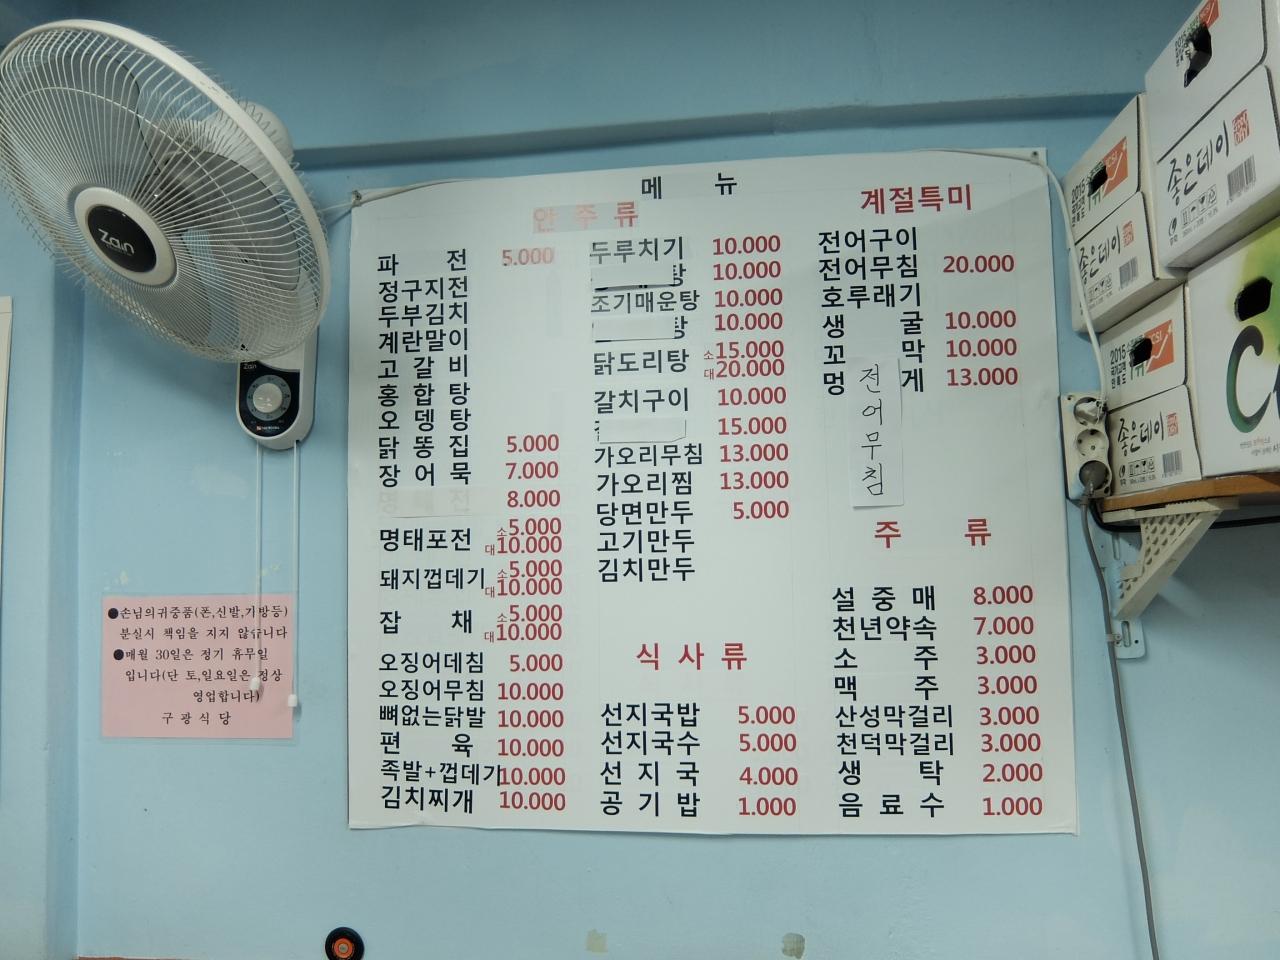 메 뉴
안 주 류
파 전 5.000
정구지전
두부김치
계란말이
고 갈 비
홍 합 탕
오 뎅 탕
닭 똥 집 5.000
장 어 묵 7.000
8.000
명태포전 소5.000
대10.000
돼지껍데기 소5.000
대10.000
잡 채 소5.000
대10.000
오징어데침 5.000
오징어무침 10.000
뼈없는닭발 10.000
편 육 10.000
족발+껍데기10.000
김치찌개 10.000
두루치기 10.000
탕 10.000
조기매운탕 10.000
탕 10.000
닭도리탕 소15.000
대20.000
갈치구이 10.000
15.000
가오리무침 13.000
가오리찜 13.000
당면만두 5.000
고기만두
김치만두
식 사 류
선지국밥 5.000
선지국수 5.000
선 지 국 4.000
공 기 밥 1.000
계절특미
전어구이
전어무침 20.000
호루래기
생 굴 10.000
꼬 막 10.000
멍 게 13.000
전어무침
주 류
설 중 매 8.000
천년약속 7.000
소 주 3.000
맥 주 3.000
산성막걸리 3.000
천덕막걸리 3.000
생 탁 2.000
음 료 수 1.000
●손님의귀중품(폰,신발,가방등)
분실시 책임을 지지 않습니다
●매월 30일은 정기 휴무일
입니다(단 토,일요일은 정상
영업합니다)
구 광 식 당
Zain
Zain
좋은데이
좋은데이
좋은데이
2015
2015